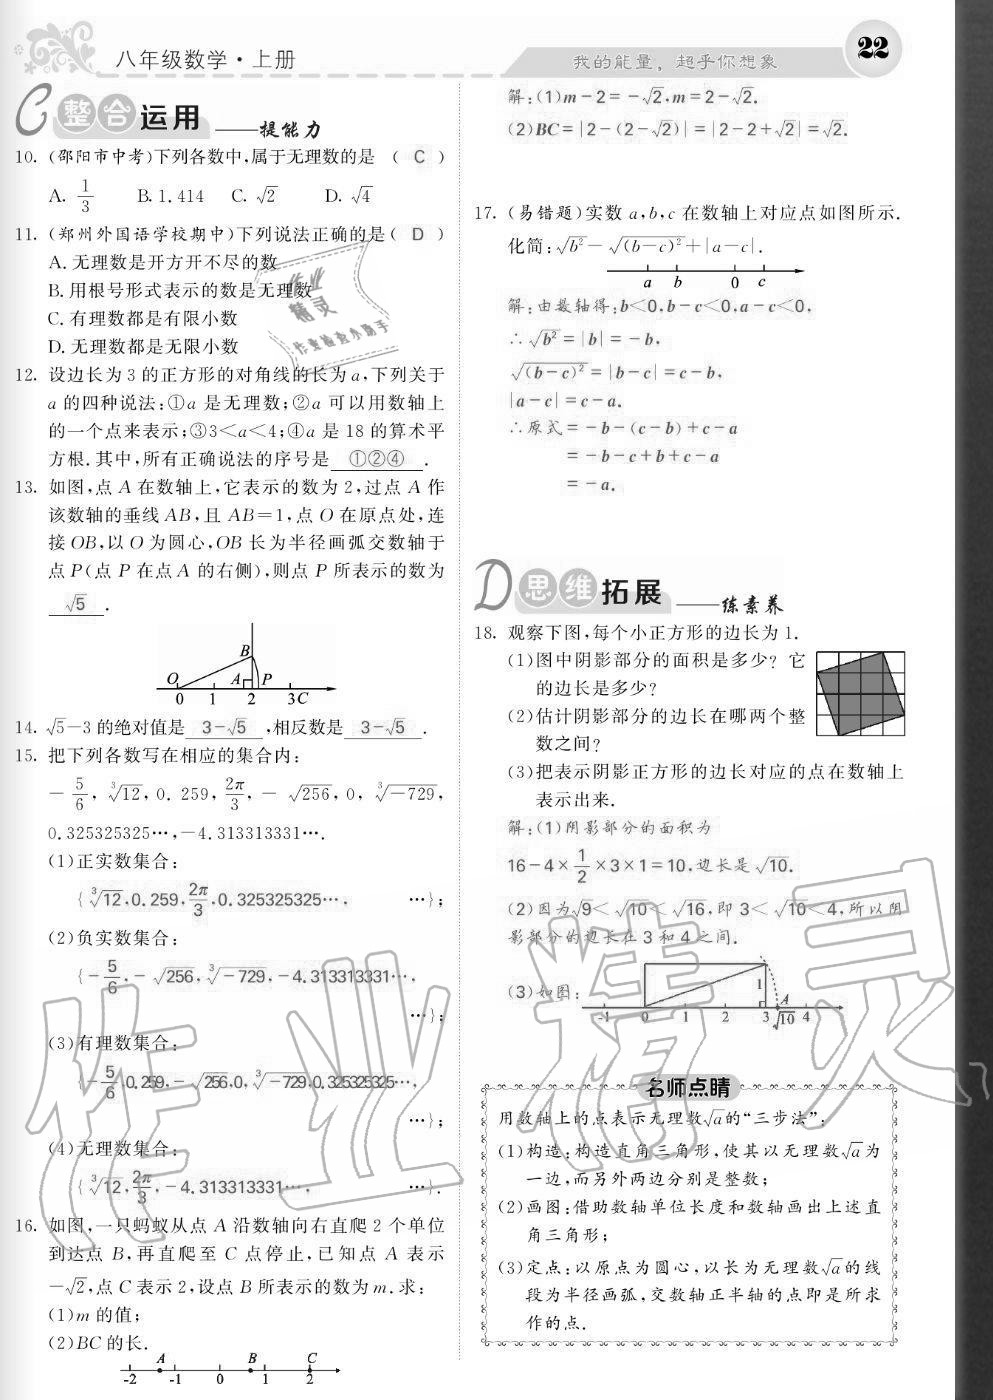 八年级数学·上册
我的能量，超乎你想象
22
C 整合运用 ——提能力
10. (邵阳市中考)下列各数中,属于无理数的是 ( C )
A. 1/3 B. 1.414 C. √2 D. √4
11. (郑州外国语学校期中)下列说法正确的是( D )
A. 无理数是开方开不尽的数
B. 用根号形式表示的数是无理数
C. 有理数都是有限小数
D. 无理数都是无限小数
12. 设边长为 3 的正方形的对角线的长为 a,下列关于
a 的四种说法:①a 是无理数;②a 可以用数轴上
的一个点来表示;③3<a<4;④a 是 18 的算术平
方根.其中,所有正确说法的序号是 ①②④ .
13. 如图,点 A 在数轴上,它表示的数为 2,过点 A 作
该数轴的垂线 AB,且 AB=1,点 O 在原点处,连
接 OB,以 O 为圆心,OB 长为半径画弧交数轴于
点 P(点 P 在点 A 的右侧),则点 P 所表示的数为
√5 .
B
O A P
0 1 2 3 C
14. √5-3 的绝对值是 3-√5 ,相反数是 3-√5 .
15. 把下列各数写在相应的集合内:
-5/6, ³√12, 0.259, 2π/3, -√256, 0, ³√-729,
0.325325325…,-4.313313331….
(1)正实数集合:
{³√12,0.259,2π/3,0.325325325…, …};
(2)负实数集合:
{-5/6,-√256,³√-729,-4.313313331…,
…};
(3)有理数集合:
{-5/6,0.259,-√256,0,³√-729,0.325325325…,
…};
(4)无理数集合:
{³√12,2π/3,-4.313313331…, …}.
16. 如图,一只蚂蚁从点 A 沿数轴向右直爬 2 个单位
到达点 B,再直爬至 C 点停止,已知点 A 表示
-√2,点 C 表示 2,设点 B 所表示的数为 m.求:
(1)m 的值;
(2)BC 的长.
A B C
-2 -1 0 1 2
解:(1)m-2=-√2,m=2-√2.
(2)BC=|2-(2-√2)|=|2-2+√2|=√2.
17. (易错题)实数 a,b,c 在数轴上对应点如图所示.
化简:√b²-√(b-c)²+|a-c|.
a b 0 c
解:由数轴得:b<0,b-c<0,a-c<0,
∴√b²=|b|=-b,
√(b-c)²=|b-c|=c-b,
|a-c|=c-a.
∴原式=-b-(c-b)+c-a
=-b-c+b+c-a
=-a.
D 思维拓展 ——练素养
18. 观察下图,每个小正方形的边长为 1.
(1)图中阴影部分的面积是多少? 它
的边长是多少?
(2)估计阴影部分的边长在哪两个整
数之间?
(3)把表示阴影正方形的边长对应的点在数轴上
表示出来.
解:(1)阴影部分的面积为
16-4×1/2×3×1=10,边长是√10.
(2)因为√9<√10<√16,即 3<√10<4,所以阴
影部分的边长在 3 和 4 之间.
(3)如图:
1 A
-1 0 1 2 3 √10 4
名师点睛
用数轴上的点表示无理数√a的“三步法”:
(1)构造:构造直角三角形,使其以无理数√a为
一边,而另外两边分别是整数;
(2)画图:借助数轴单位长度和数轴画出上述直
角三角形;
(3)定点:以原点为圆心,以长为无理数√a的线
段为半径画弧,交数轴正半轴的点即是所求
作的点.
作业精灵
作业精灵
作业检查小助手